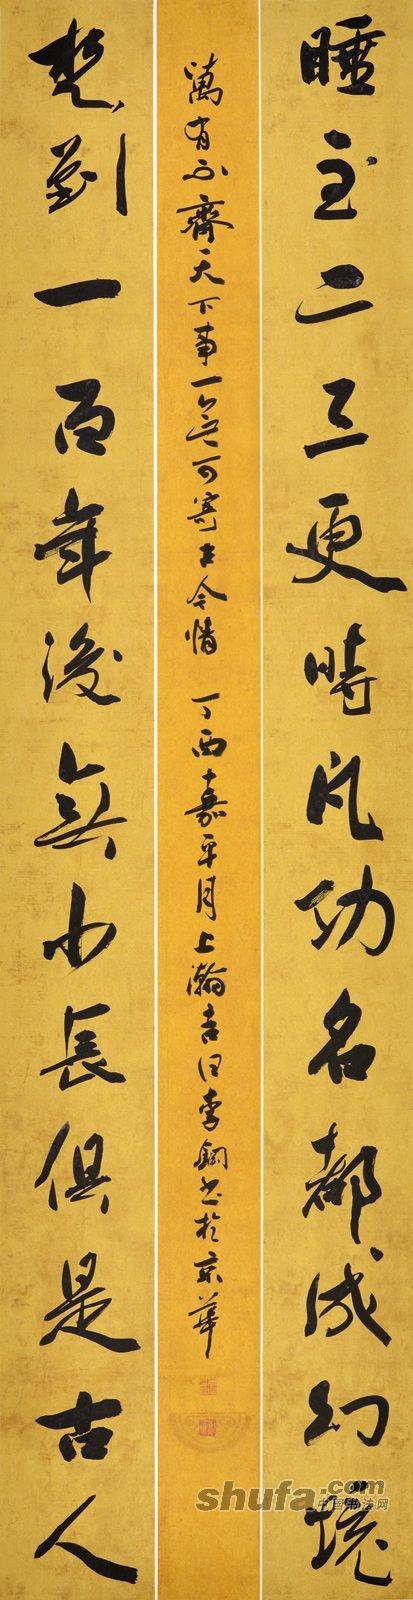 睡至二三更時凡功名都成幻境
萬有不齊天下事一無可寄古今情 丁酉嘉平月上瀚吉日李書於京華
想到一百年後無少長俱是古人
shufa.com
中国书法网